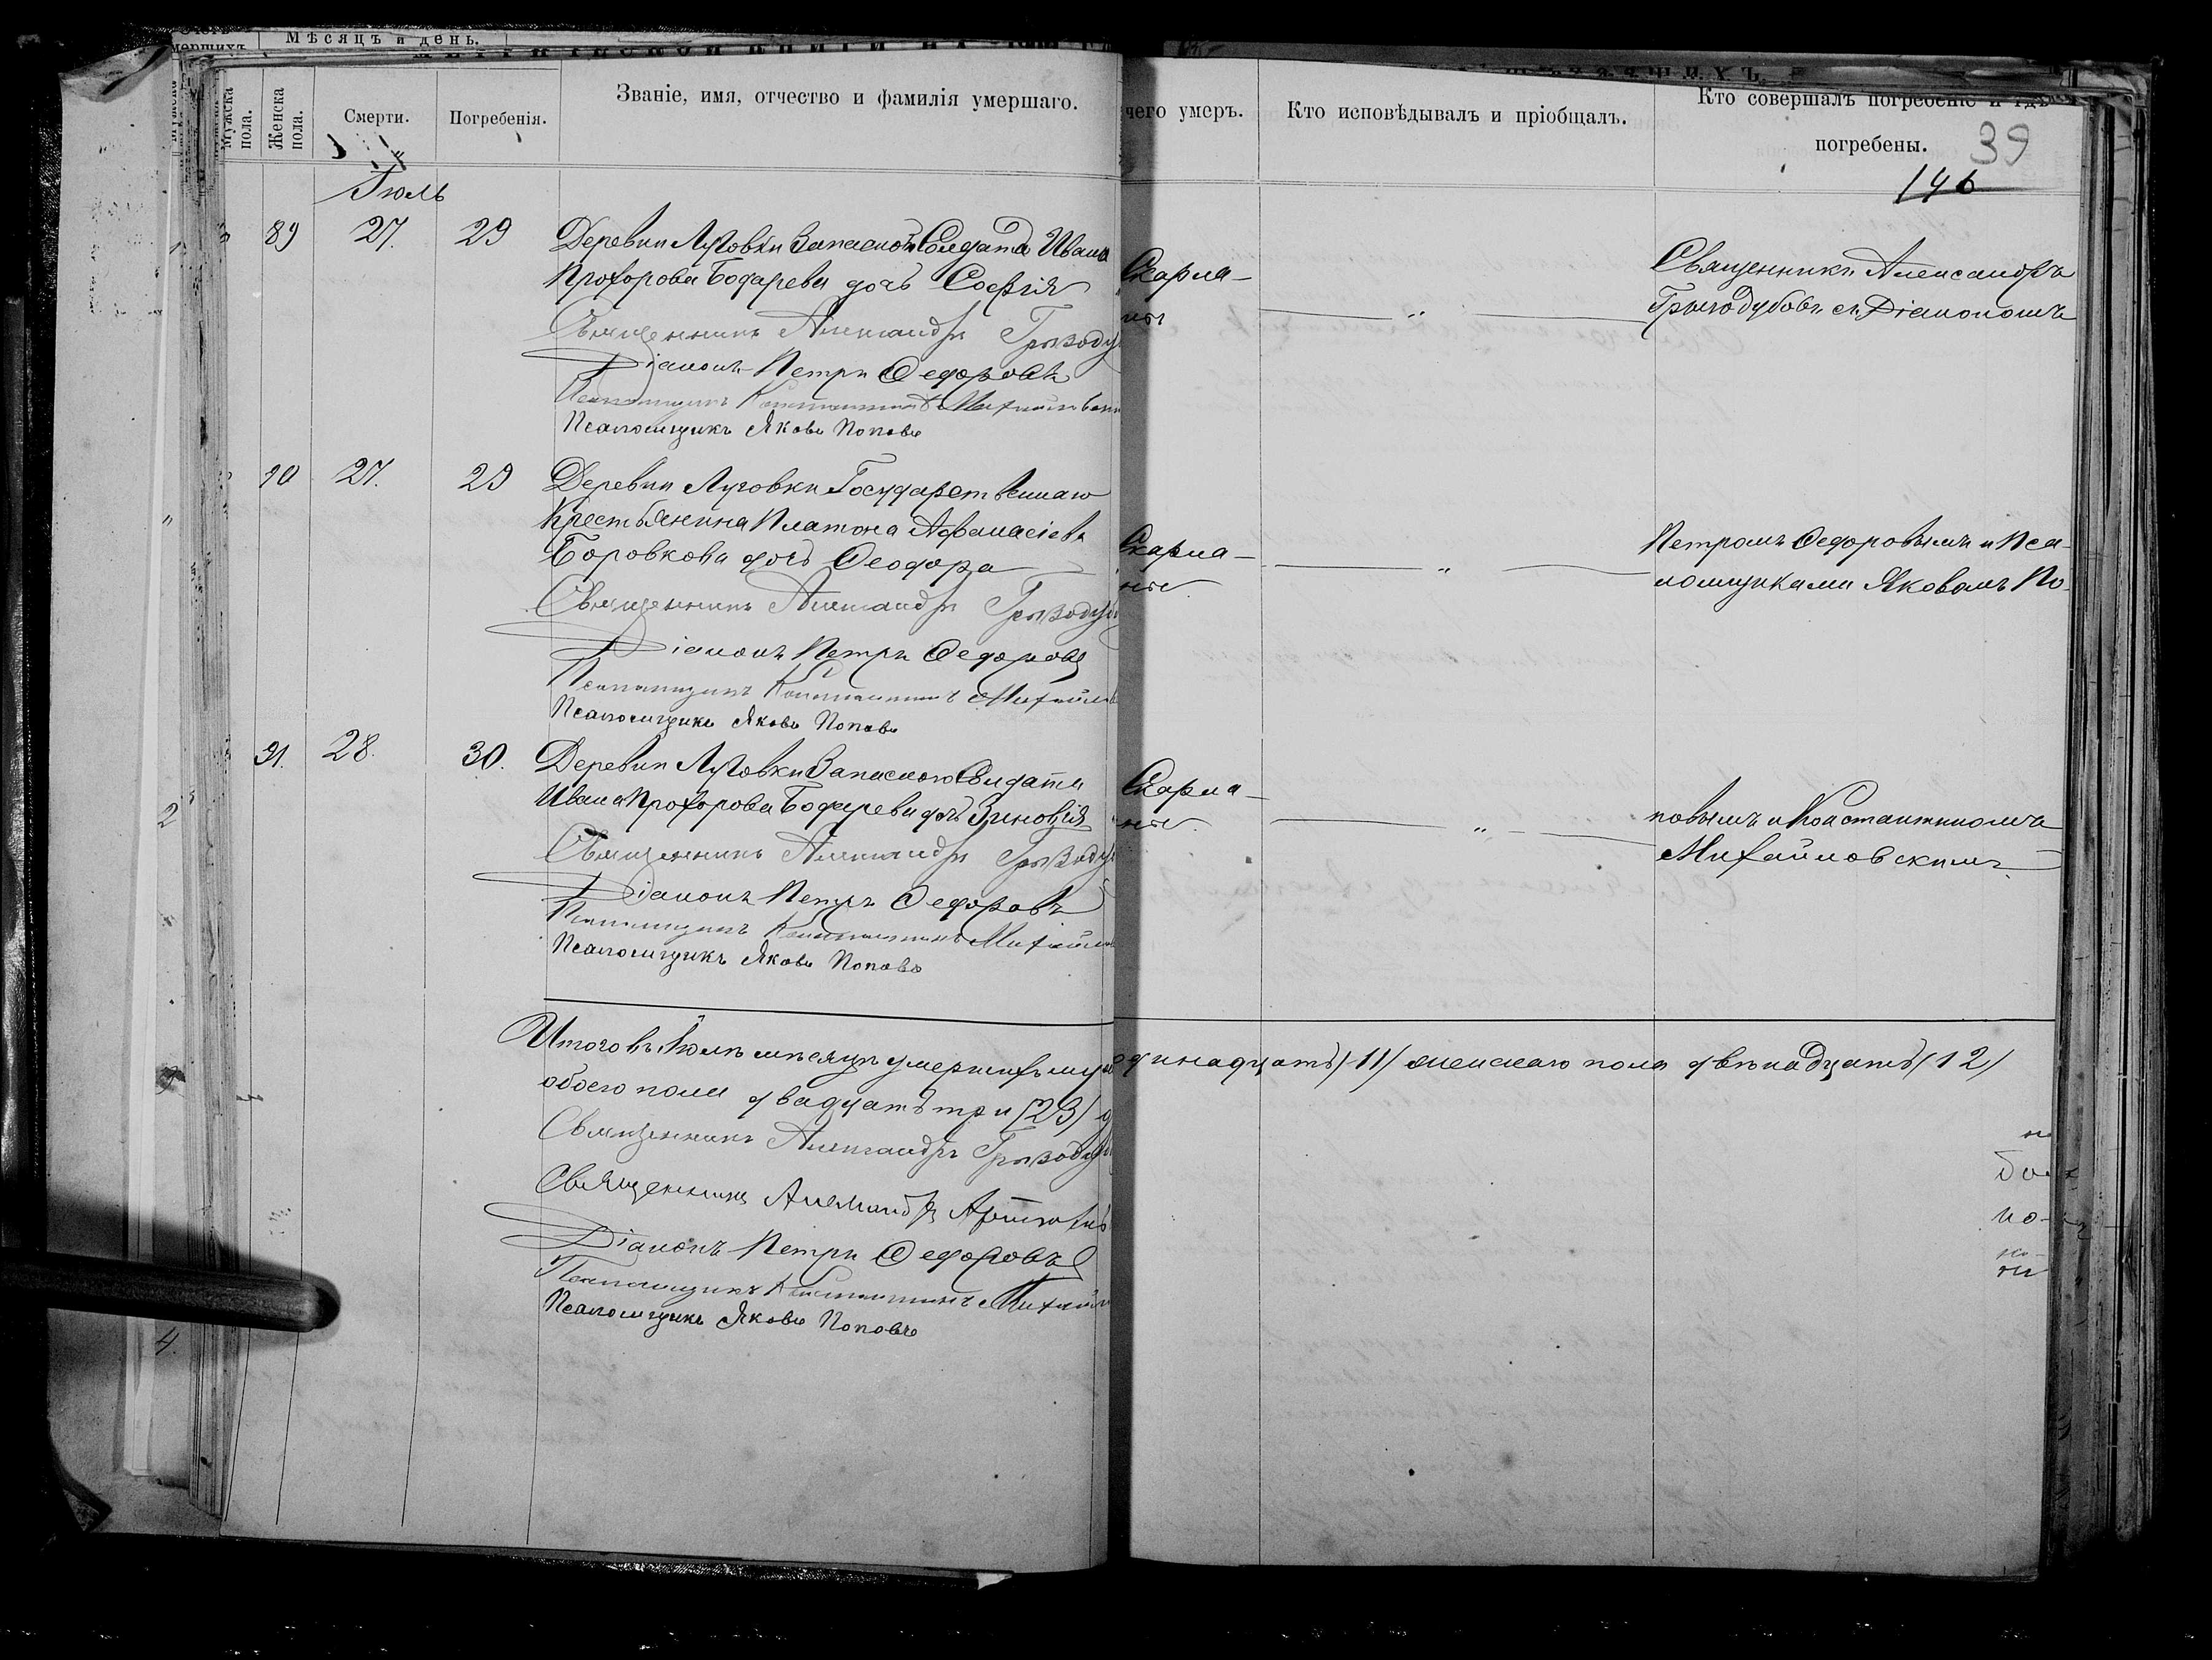 Мѣсяцъ и день.
Мужска пола.
Женска пола.
Смерти.
Погребенія.
Званіе, имя, отчество и фамилія умершаго.
чего умеръ.
Кто исповѣдывалъ и пріобщалъ.
Кто совершалъ погребеніе и гдѣ
погребены.
39
146
Іюль
89 27. 29 Деревни Луговки Запаснаго Солдата Ивана
Прохорова Бодарева дочь Софія
Священникъ Александръ
Діаконъ Петръ Ѳедоровъ
Псаломщикъ Константинъ
Псаломщикъ Яковъ Поповъ
Скарла-
на
"
Священникъ Александръ
съ Діакономъ
90 27. 29 Деревни Луговки Государственнаго
Крестьянина Платона Аѳанасіева
Боровкова дочь Ѳеодора
Священникъ Александръ
Діаконъ Петръ Ѳедоровъ
Псаломщикъ Константинъ
Псаломщикъ Яковъ Поповъ
Скарла-
"
Петромъ Ѳедоровымъ и Пса-
ломщиками Яковомъ По-
91. 28. 30. Деревни Луговки Запаснаго Солдата
Ивана Прохорова Бодарева дочь Зиновія
Священникъ Александръ
Діаконъ Петръ Ѳедоровъ
Псаломщикъ Константинъ
Псаломщикъ Яковъ Поповъ
Скарла-
"
повымъ и Константиномъ
Михайловскимъ.
Итого въ Іюлѣ мѣсяцѣ умершихъ динадцать /11/ женскаго пола двѣнадцать /12/
обоего пола двадцать три /23/
Священникъ Александръ
Священникъ Александръ
Діаконъ Петръ Ѳедоровъ
Псаломщикъ Константинъ
Псаломщикъ Яковъ Поповъ
2
4.